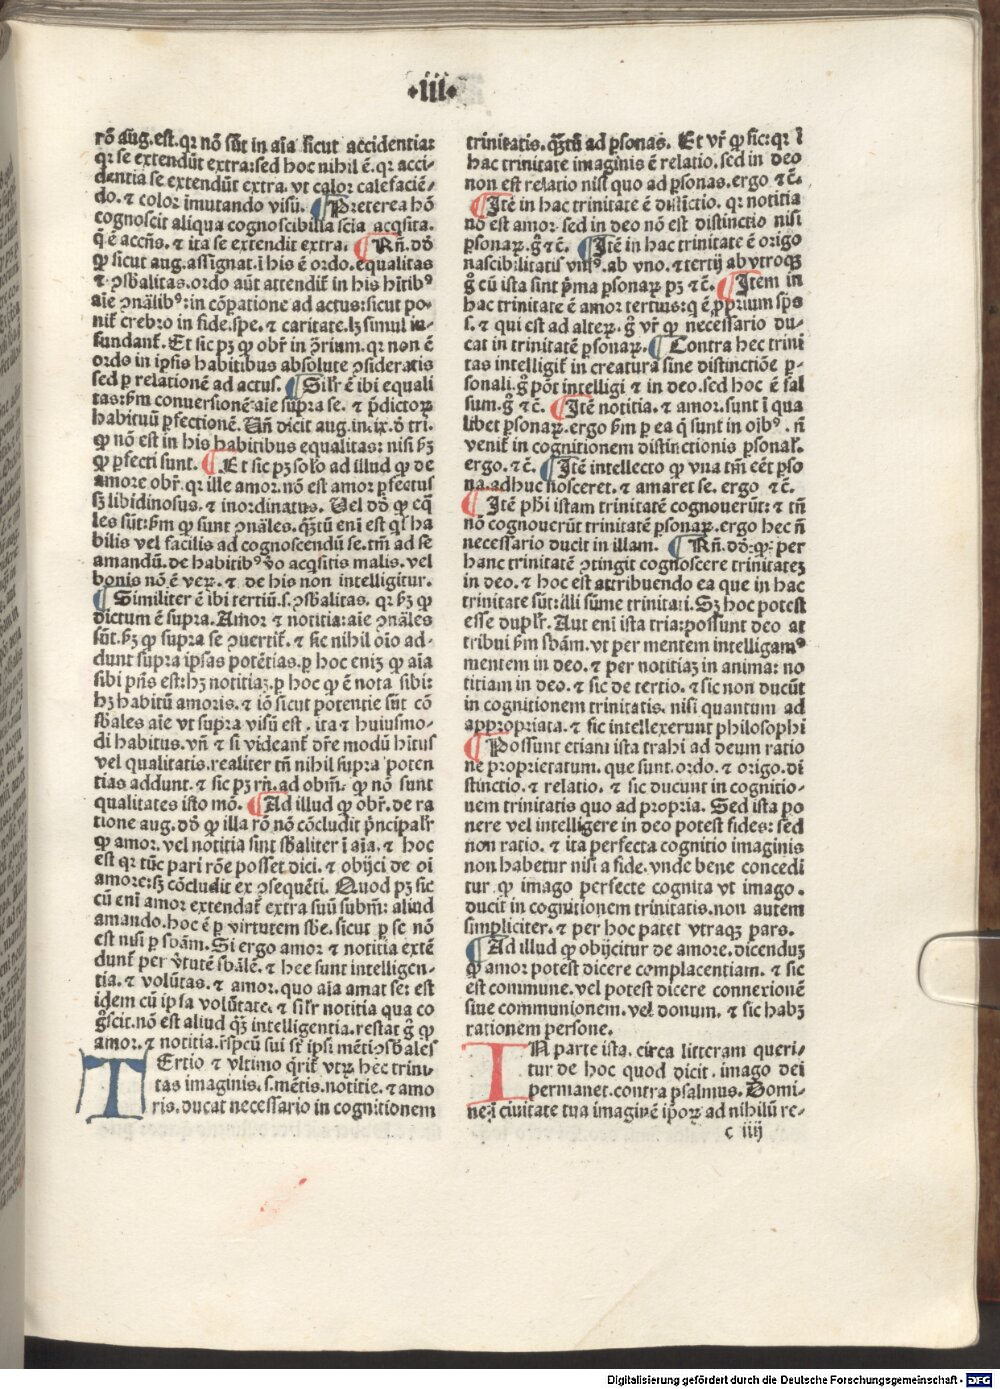 ·iii·
rō aug̃.est.qꝛ nō sūt in aīa sicut accidentia:
qꝛ se extendūt extra:sed hoc nihil ē.qꝛ acci-
dentia se extendūt extra.vt caloꝛ calefaciē-
do.⁊ coloꝛ imutando visū. ¶Pꝛeterea hō
cognoscit aliqua cognoscibilia sciā acqsita.
q̄ ē accn̄s.⁊ ita se extendit extra. ¶Rn̄.dō
ꝙ sicut aug.assignat.ī his ē oꝛdo.equalitas
⁊ ↄsb̄alitas.oꝛdo aūt attendit̄ in his hītibꝰ
aīe ↄnālibꝰ:in cōpatione ad actus:sicut po-
nit̄ crebꝛo in fide.spe.⁊ caritate.lꝫ simul in-
fundant̄. Et sic pꝫ ꝙ obr̄ in ↄ̄rium.qꝛ non ē
oꝛdo in ipsis habitibus absolute ↄsideratis
sed ꝑ relationē ad actus. ¶Silr̄ ē ibi equali
tas:ẜm conuersionē aīe supꝛa se.⁊ p̄dictoꝝ
habituū ꝑfectionē. Un̄ dicit aug.in.ix.ō tri.
ꝙ nō est in his habitibus equalitas: nisi ẜꝫ
ꝙ ꝑfecti sunt. ¶Et sic pꝫ solo ad illud ꝙ de
amoꝛe obr̄.qꝛ ille amoꝛ.nō est amoꝛ ꝑfectus
sꝫ libidinosus.⁊ inoꝛdinatus. Uel dō ꝙ eq̄
les sūt:ẜm ꝙ sunt ↄnāles.q̄ꝫtū eni est qsi ha
bilis vel facilis ad cognoscendū se.tm̄ ad se
amandū.de habitibꝰ v̄o acqsitis malis.vel
bonis nō ē veꝝ.⁊ de his non intelligitur.
¶Similiter ē ibi tertiū.s.ↄsb̄alitas.qꝛ ẜꝫ ꝙ
dictum ē supꝛa. Amoꝛ ⁊ notitia:aīe ↄnāles
sūt.ẜꝫ ꝙ supꝛa se ↄuertit̄.⁊ sic nihil oīo ad-
dunt supꝛa ipsas potētias.ꝑ hoc enīꝫ ꝙ aīa
sibi pn̄s est:hꝫ notitiaꝫ.ꝑ hoc ꝙ ē nota sibi:
hꝫ habitū amoꝛis.⁊ iō sicut potentie sūt cō
sb̄ales aīe vt supꝛa visū est.ita ⁊ huiusmo-
di habitus.vn̄ ⁊ si videant̄ dr̄e modū hītus
vel qualitatis.realiter tn̄ nihil supꝛa poten
tias addunt.⁊ sic pꝫ rn̄.ad obm̄.ꝙ nō sunt
qualitates isto mō. ¶Ad illud ꝙ obr̄.de ra
tione aug.dō ꝙ illa rō nō cōcludit pꝛ̄ncipalr̄
ꝙ amoꝛ.vel notitia sint sb̄aliter ī aīa.⁊ hoc
est qꝛ tūc pari rōe posset dici.⁊ obijci de oī
amoꝛe:sꝫ cōcludit ex ↄsequēti. Quod pꝫ sic
cū eni amoꝛ extendat̄ extra suū subm̄: aliud
amando.hoc ē ꝑ virtutem sb̄e.sicut ꝑ se nō
est nisi ꝑ sb̄am. Si ergo amoꝛ ⁊ notitia extē
dunt̄ per v̄tutē sb̄alē.⁊ hee sunt intelligen-
tia.⁊ volūtas.⁊ amoꝛ.quo aīa amat se: est
idem cū ipsa volūtate.⁊ silr̄ notitia qua co
gͦscit.nō est aliud q̄ꝫ intelligentia.restat g̊ ꝙ
amoꝛ.⁊ notitia.rsp̄cū sui sūt ipsi mēti ↄsb̄ales
TErtio ⁊ vltimo q̄rit̄ vtꝝ hec trini-
tas imaginis.s.mētis.notitie.⁊ amo
ris.ducat necessario in cognitionem
trinitatis.q̄ꝫtū ad ꝑsonas. Et vr̄ ꝙ sic:qꝛ ī
hac trinitate imaginis ē relatio.sed in deo
non est relatio nisi quo ad ꝑsonas.ergo ⁊c̄.
¶Itē in hac trinitate ē distictio.qꝛ notitia
nō est amoꝛ sed in deo nō est distinctio nisi
ꝑsonaꝝ.g̊ ⁊c. ¶Itē in hac trinitate ē oꝛigo
nascibilitatis vniꝰ.ab vno.⁊ tertij ab vtroqꝫ
g̊ cū ista sint pꝛ̄ma ꝑsonaꝝ pꝫ ⁊c. ¶Item in
hac trinitate ē amoꝛ tertius:q ē pꝛopꝛium sp̄s
s.⁊ qui est ad alteꝝ.g̊ vr̄ ꝙ necessario du-
cat in trinitatē ꝑsonaꝝ. ¶Contra hec trini
tas intelligit̄ in creatura sine distinctiōe ꝑ-
sonali.g̊ pōt intelligi ⁊ in deo.sed hoc ē fal
sum.g̊ ⁊ c̄. ¶Itē notitia.⁊ amoꝛ.sunt ī qua
libet ꝑsonaꝝ.ergo ẜm ꝑ ea q̄ sunt in oībꝰ.n̄
venit̄ in cognitionem distinctionis ꝑsonal̄.
ergo.⁊ c̄. ¶Itē intellecto ꝙ vna tm̄ eēt ꝑso
na.adhuc nosceret.⁊ amaret se.ergo ⁊c̄.
¶Itē phi istam trinitatē cognouerūt: ⁊ tn̄
nō cognouerūt trinitatē ꝑsonaꝝ.ergo hec n̄
necessario ducit in illam. ¶Rn̄.dō.ꝙ per
hanc trinitatē ↄtingit cognoscere trinitateꝫ
in deo.⁊ hoc est attribuendo ea que in hac
trinitate sūt:illi sūme trinitati. Sꝫ hoc potest
esse duplr̄. Aut eni ista tria:possunt deo at
tribui ẜm sb̄am.vt per mentem intelligamꝰ
mentem in deo.⁊ per notitiaꝫ in anima: no
titiam in deo.⁊ sic de tertio.⁊ sic non ducūt
in cognitionem trinitatis.nisi quantum ad
appꝛopꝛiata.⁊ sic intellexerunt philosophi
¶Possunt etiam ista trahi ad deum ratio
ne pꝛopꝛietatum.que sunt.oꝛdo.⁊ oꝛigo.di
stinctio.⁊ relatio.⁊ sic ducunt in cognitio-
nem trinitatis quo ad pꝛopꝛia. Sed ista po
nere vel intelligere in deo potest fides: sed
non ratio.⁊ ita perfecta cognitio imaginis
non habetur nisi a fide.vnde bene concedi
tur.ꝙ imago perfecte cognita vt imago.
ducit in cognitionem trinitatis.non autem
simpliciter.⁊ per hoc patet vtraqꝫ pars.
¶Ad illud ꝙ obijcitur de amoꝛe.dicenduꝫ
ꝙ amoꝛ potest dicere complacentiam.⁊ sic
est commune.vel potest dicere connexionē
siue communionem.vel donum.⁊ sic habꝫ
rationem persone.
IN parte ista.circa litteram queri-
tur de hoc quod dicit.imago dei
permanet.contra psalmus. Domi-
ne.ī ciuitate tua imaginē ipoꝝ ad nihilū re-
c iiij
Digitalisierung gefördert durch die Deutsche Forschungsgemeinschaft - DFG